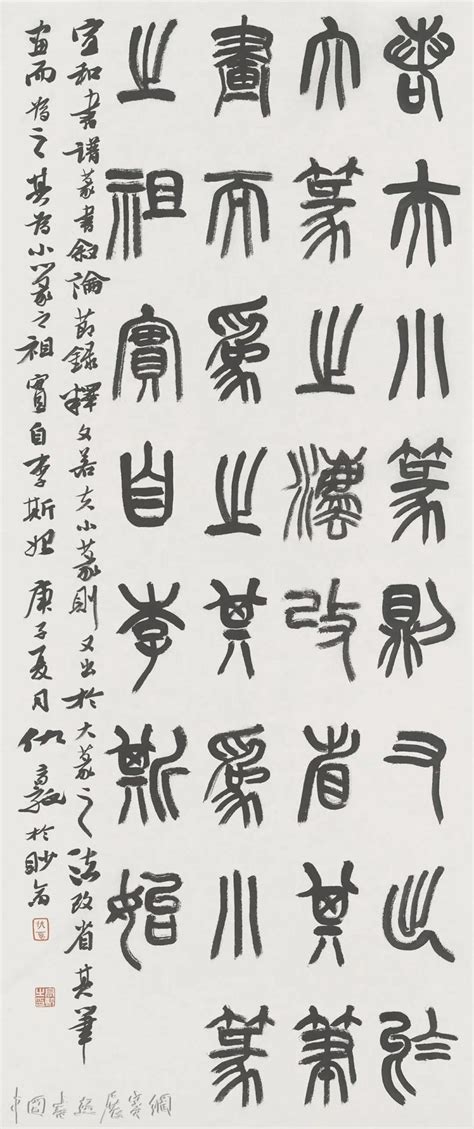 若夫小篆則又出於
大篆之灋改省其筆
畫而為之其為小篆
之祖實自李斯始
宣和書譜篆書叙論節錄釋文若夫小篆則又出於大篆之法改省其筆
畫而為之其為小篆之祖實自李斯始庚子夏月於
中国書法展賽網